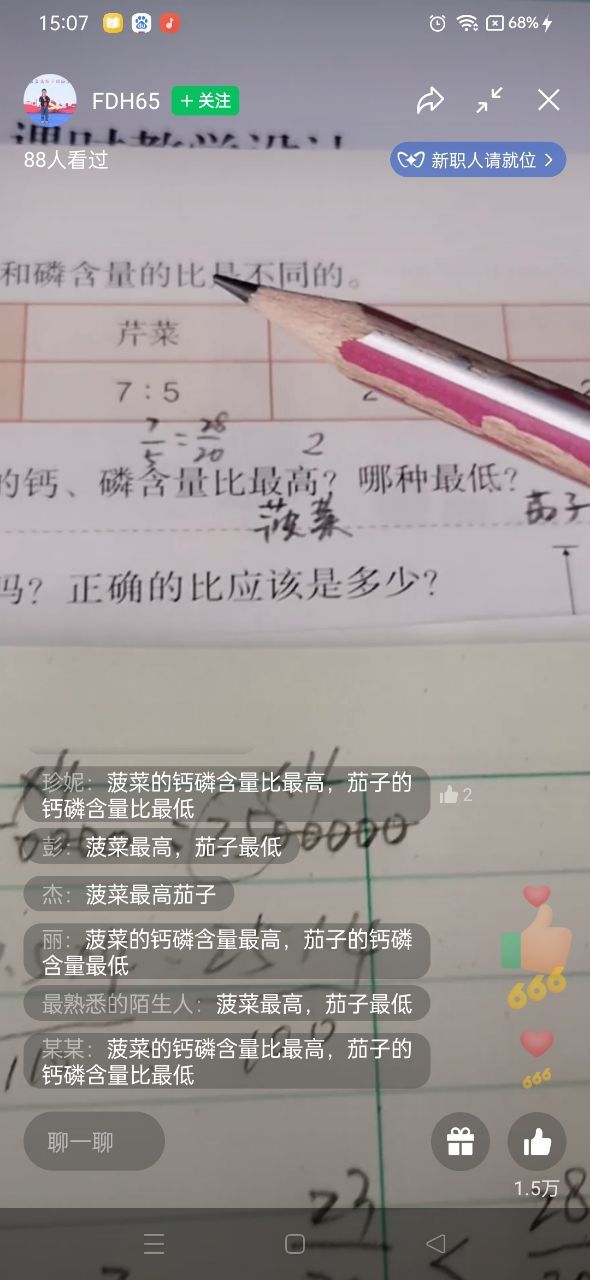 15:07
68%
FDH65
+ 关注
课时教学设计
88人看过
新职人请就位
和磷含量的比是不同的。
芹菜
7：5
2
7/5 = 28/20
2
的钙、磷含量比最高？哪种最低？
菠菜
茄子
吗？正确的比应该是多少？
珍妮：菠菜的钙磷含量比最高，茄子的
钙磷含量比最低
2
彭：菠菜最高，茄子最低
杰：菠菜最高茄子
丽：菠菜的钙磷含量最高，茄子的钙磷
含量最低
最熟悉的陌生人：菠菜最高，茄子最低
某某：菠菜的钙磷含量比最高，茄子的
钙磷含量比最低
666
666
聊一聊
1.5万
23
<
28